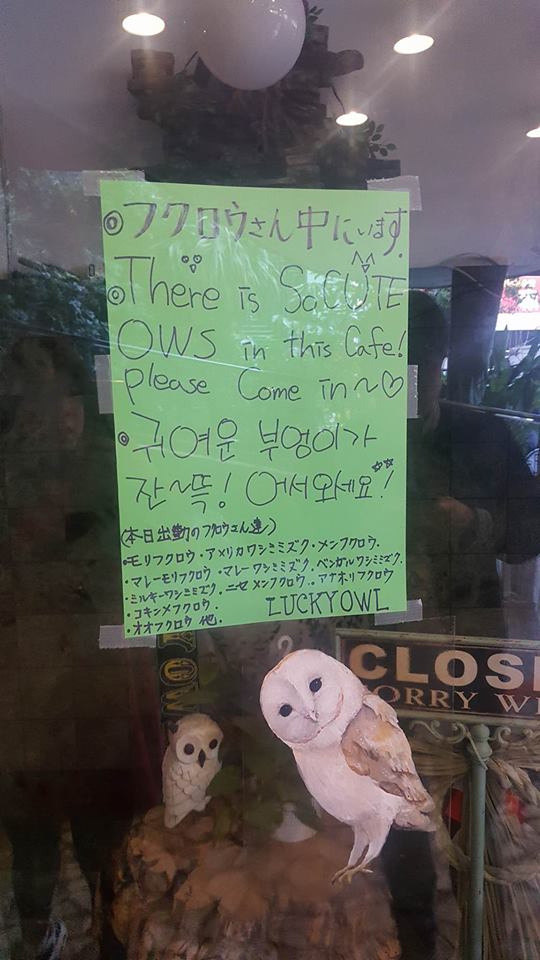 ◎フクロウさん中にいます.
◎There is So CUTE
OWS in this Cafe!
please Come in~♡
◎귀여운 부엉이가
잔~뜩! 어서와세요!
(本日出勤のフクロウさん達)
・モリフクロウ・アメリカワシミミズク・メンフクロウ.
・マレーモリフクロウ・マレーワシミミズク.ベンガルワシミミズク.
・ミルキーワシミミズク.ニセメンフクロウ.アナホリフクロウ
・コキンメフクロウ.
・オオフクロウ 他.
LUCKY OWL
CLOS
ORRY WE